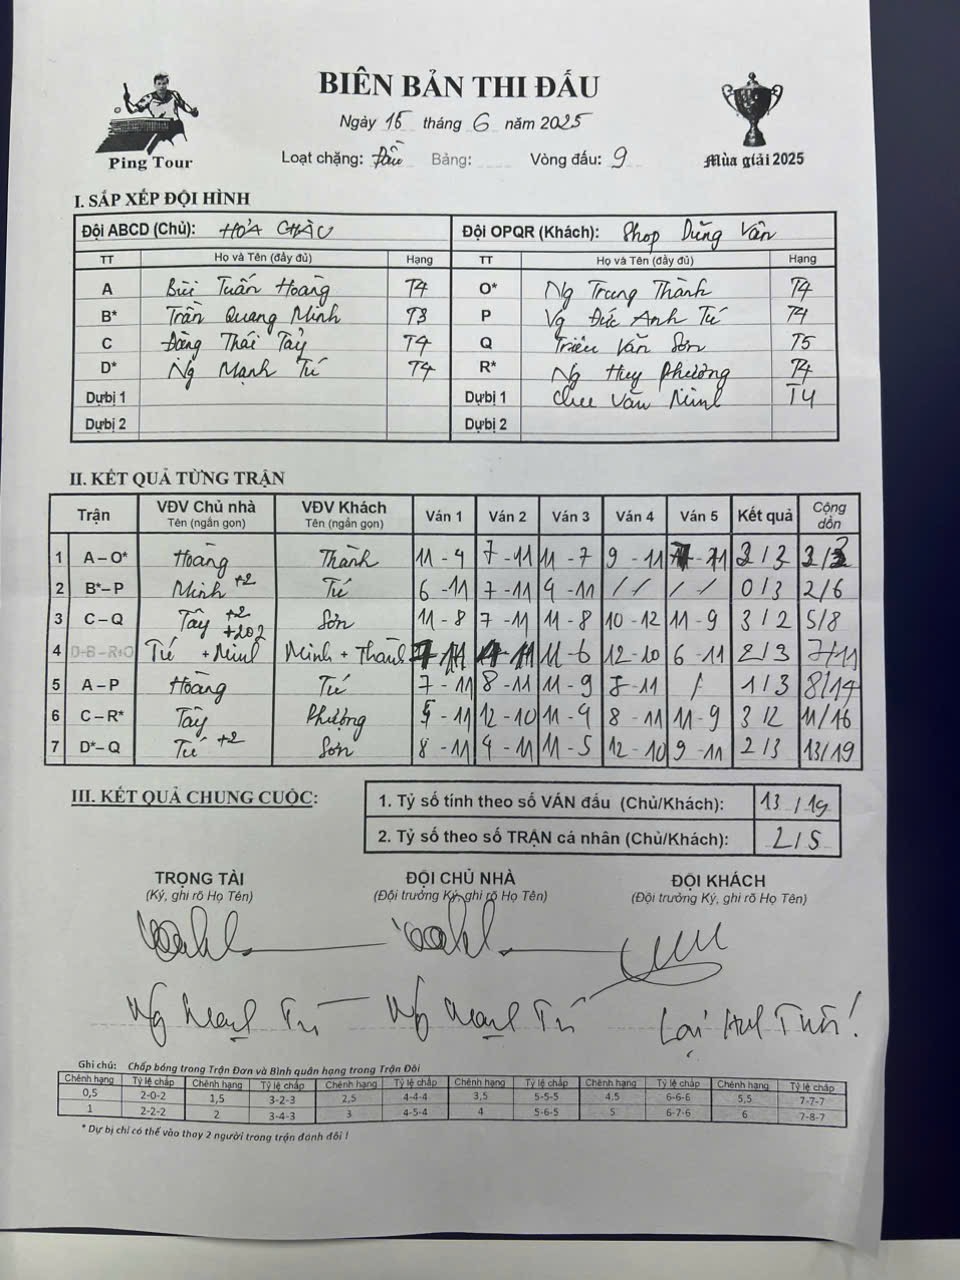 BIÊN BẢN THI ĐẤU
Ngày 15 tháng 6 năm 2025
Ping Tour
Loại chặng: Đầu Bảng: Vòng đấu: 9
Mùa giải 2025
I. SẮP XẾP ĐỘI HÌNH
Đội ABCD (Chủ): HỎA CHÂU Đội OPQR (Khách): Shop Dũng Vân
TT Họ và Tên (đầy đủ) Hạng TT Họ và Tên (đầy đủ) Hạng
A Bùi Tuấn Hoàng T4 O* Ng Trung Thành T4
B* Trần Quang Minh T3 P Vg Đức Anh Tú T4
C Đặng Thái Tây T4 Q Triệu Văn Sơn T5
D* Ng Mạnh Tú T4 R* Ng Huy Phương T4
Dự bị 1 Dự bị 1 Chu Văn Minh T4
Dự bị 2 Dự bị 2
II. KẾT QUẢ TỪNG TRẬN
Trận VĐV Chủ nhà Tên (ngắn gọn) VĐV Khách Tên (ngắn gọn) Ván 1 Ván 2 Ván 3 Ván 4 Ván 5 Kết quả Cộng dồn
1 A – O* Hoàng Thành 11 - 4 7 - 11 11 - 7 9 - 11 7 - 11 2/3 2/3
2 B* – P Minh +2 Tú 6 - 11 7 - 11 9 - 11 / / / / 0/3 2/6
3 C – Q Tây +2 Sơn 11 - 8 7 - 11 11 - 8 10 - 12 11 - 9 3/2 5/8
4 D-B – R+O Tú + Minh +202 Minh + Thành 7 - 11 11 - 6 12 - 10 6 - 11 2/3 7/11
5 A – P Hoàng Tú 7 - 11 8 - 11 11 - 9 8 - 11 / 1/3 8/14
6 C – R* Tây Phượng 5 - 11 12 - 10 11 - 9 8 - 11 11 - 9 3/2 11/16
7 D* – Q Tú +2 Sơn 8 - 11 9 - 11 11 - 5 12 - 10 9 - 11 2/3 13/19
III. KẾT QUẢ CHUNG CUỘC:
1. Tỷ số tính theo số VÁN đấu (Chủ/Khách): 13/19
2. Tỷ số theo số TRẬN cá nhân (Chủ/Khách): 2/5
TRỌNG TÀI ĐỘI CHỦ NHÀ ĐỘI KHÁCH
(Ký, ghi rõ Họ Tên) (Đội trưởng Ký, ghi rõ Họ Tên) (Đội trưởng Ký, ghi rõ Họ Tên)
Ng Mạnh Tú Ng Mạnh Tú Lại
Ghi chú: Chấp bóng trong Trận Đơn và Bình quân hạng trong Trận Đôi
Chênh hạng Tỷ lệ chấp Chênh hạng Tỷ lệ chấp Chênh hạng Tỷ lệ chấp Chênh hạng Tỷ lệ chấp Chênh hạng Tỷ lệ chấp Chênh hạng Tỷ lệ chấp
0,5 2-0-2 1,5 3-2-3 2,5 4-4-4 3,5 5-5-5 4,5 6-6-6 5,5 7-7-7
1 2-2-2 2 3-4-3 3 4-5-4 4 5-6-5 5 6-7-6 6 7-8-7
* Dự bị chỉ có thể vào thay 2 người trong trận đánh đôi !